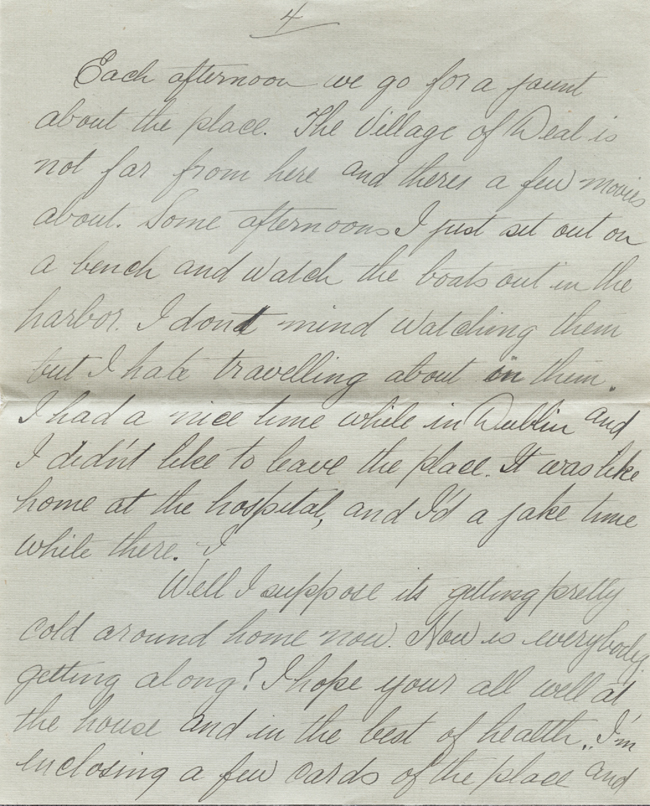 4
Each afternoon we go for a jaunt
about the place. The Village of Deal is
not far from here and theres a few movies
about. Some afternoons I just sit out on
a bench and watch the boats out in the
harbor. I dont mind watching them
but I hate travelling about in them.
I had a nice time while in Dublin and
I didn't like to leave the place. It was like
home at the hospital, and I'd a jake time
while there. I
Well I suppose its getting pretty
cold around home now. How is everybody
getting along? I hope your all well at
the house and in the best of health. I'm
enclosing a few cards of the place and